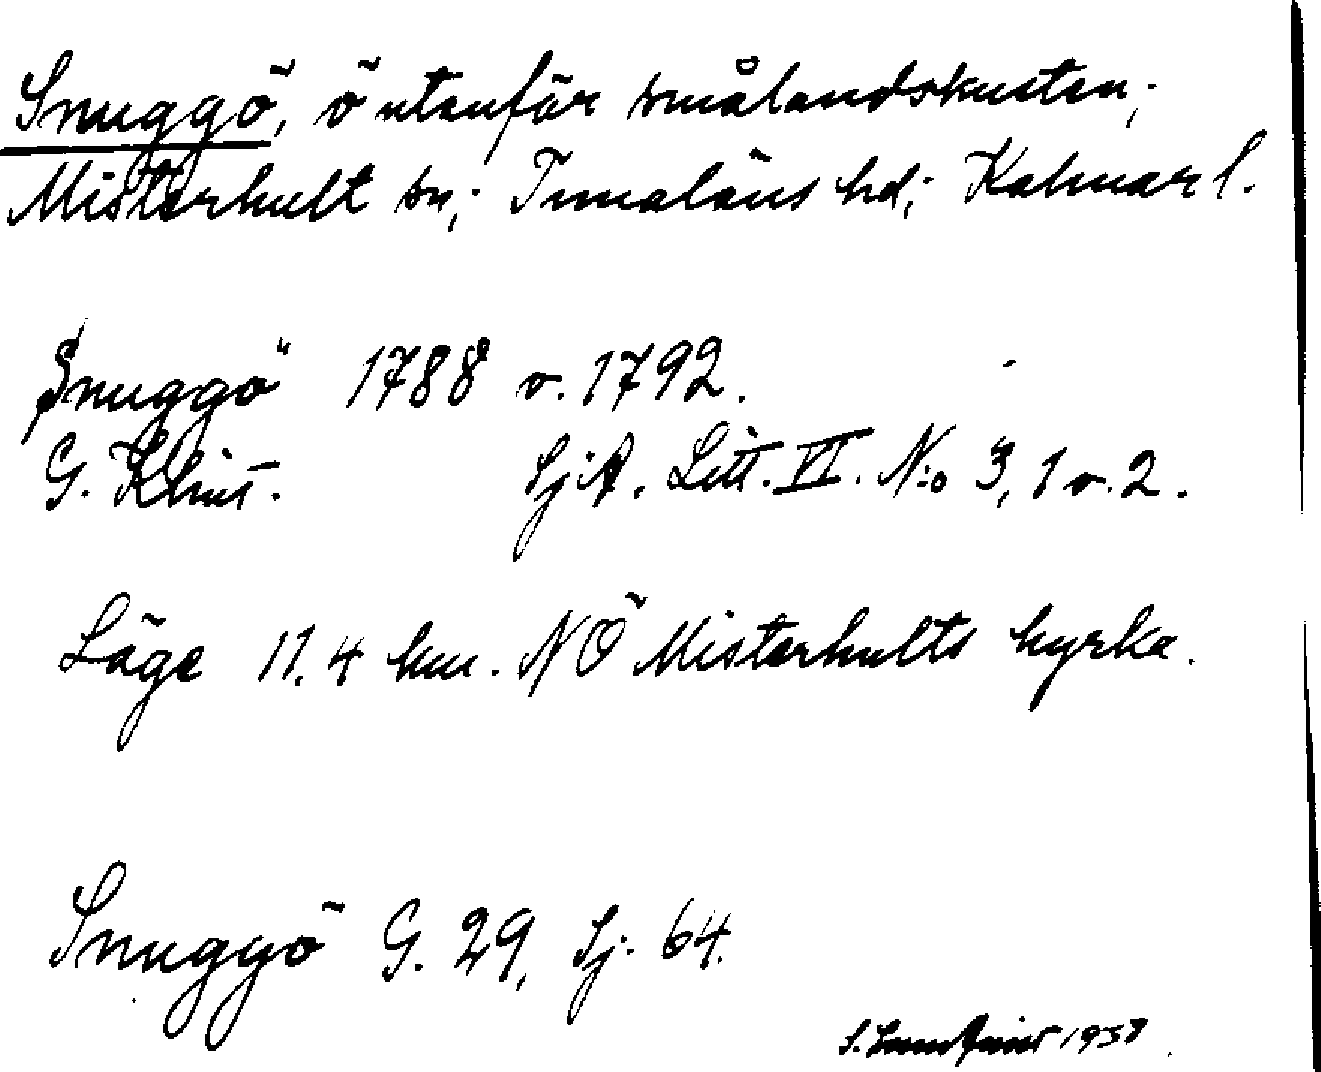 Snuggö, ö utanför smålandskusten;
Misterhult sn; Tunaläns hd; Kalmar l.
Snuggö 1788 o. 1792.
G. Klint. Sj.A. Litt. VI. N:o 3, 1 o. 2.
Läge 11.4 km. NÖ Misterhults kyrka.
Snuggö G. 29, Sj. 64.
S. 1937